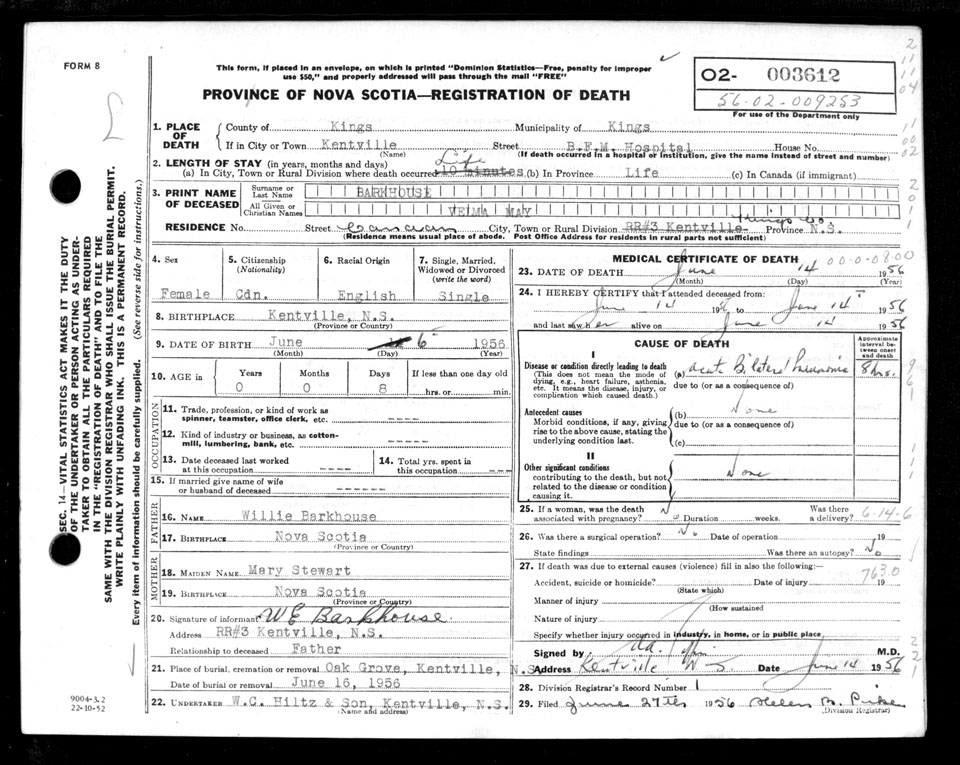 FORM 8
This form, if placed in an envelope, on which is printed "Dominion Statistics—Free, penalty for improper
use $50," and properly addressed will pass through the mail "FREE"
02- 003612
56-02-009253
For use of the Department only
PROVINCE OF NOVA SCOTIA—REGISTRATION OF DEATH
SEC. 14—VITAL STATISTICS ACT MAKES IT THE DUTY
OF THE UNDERTAKER OR PERSON ACTING AS UNDER-
TAKER TO OBTAIN ALL THE PARTICULARS REQUIRED
IN THE "REGISTRATION OF DEATH" AND TO FILE THE
SAME WITH THE DIVISION REGISTRAR WHO SHALL ISSUE THE BURIAL PERMIT.
WRITE PLAINLY WITH UNFADING INK. THIS IS A PERMANENT RECORD.
Every item of information should be carefully supplied. (See reverse side for instructions.)
1. PLACE OF DEATH County of Kings Municipality of Kings
If in City or Town Kentville Street B.F.M. Hospital House No.
(Name) (If death occurred in a hospital or institution, give the name instead of street and number)
2. LENGTH OF STAY (in years, months and days) Life
(a) In City, Town or Rural Division where death occurred 10 minutes (b) In Province Life (c) In Canada (if immigrant)
3. PRINT NAME OF DECEASED Surname or Last Name BARKHOUSE
All Given or Christian Names VELMA MAY
Kings Co.
RESIDENCE No. Street Canaan City, Town or Rural Division RR#3 Kentville Province N.S.
(Residence means usual place of abode. Post Office Address for residents in rural parts not sufficient)
4. Sex 5. Citizenship (Nationality) 6. Racial Origin 7. Single, Married, Widowed or Divorced (write the word)
Female Cdn. English Single
8. BIRTHPLACE Kentville, N.S.
(Province or Country)
9. DATE OF BIRTH June 6 1956
(Month) (Day) (Year)
10. AGE in Years Months Days If less than one day old
0 0 8 hrs. or min.
OCCUPATION
11. Trade, profession, or kind of work as
spinner, teamster, office clerk, etc. ----
12. Kind of industry or business, as cotton-
mill, lumbering, bank, etc. -----
13. Date deceased last worked at this occupation ---- 14. Total yrs. spent in this occupation ---
15. If married give name of wife
or husband of deceased ------
FATHER
16. NAME Willie Barkhouse
17. BIRTHPLACE Nova Scotia
(Province or Country)
MOTHER
18. MAIDEN NAME Mary Stewart
19. BIRTHPLACE Nova Scotia
(Province or Country)
20. Signature of informant W E Barkhouse.
Address RR#3 Kentville, N.S.
Relationship to deceased Father
21. Place of burial, cremation or removal Oak Grove, Kentville, N.S.
Date of burial or removal June 16, 1956
22. UNDERTAKER W.C. Hiltz & Son, Kentville, N.S.
(Name and address)
MEDICAL CERTIFICATE OF DEATH 00-0-08-00
23. DATE OF DEATH June 14 1956
(Month) (Day) (Year)
24. I HEREBY CERTIFY that I attended deceased from:
June 14 1956 to June 14th 1956
and last saw her alive on June 14 1956
CAUSE OF DEATH
Approximate interval between onset and death
I
Disease or condition directly leading to death
(This does not mean the mode of dying, e.g., heart failure, asthenia, etc. It means the disease, injury, or complication which caused death.)
(a) Acute Bilateral Pneumonia 8 hrs.
due to (or as a consequence of)
Antecedent causes
Morbid conditions, if any, giving rise to the above cause, stating the underlying condition last.
(b) None
due to (or as a consequence of)
(c)
II
Other significant conditions
contributing to the death, but not related to the disease or condition causing it.
None
25. If a woman, was the death associated with pregnancy? Duration weeks. Was there a delivery? 6-14-6
26. Was there a surgical operation? No Date of operation 19
State findings Was there an autopsy? No
27. If death was due to external causes (violence) fill in also the following:— 763.0
Accident, suicide or homicide? Date of injury 19
(State which)
Manner of injury
(How sustained
Nature of injury
Specify whether injury occurred in industry, in home, or in public place
Signed by M.D.
Address Kentville N S Date June 14 1956
28. Division Registrar's Record Number 1
29. Filed June 27th 1956 Helen B. Pike
(Division Registrar)
9004-3.2
22-10-52